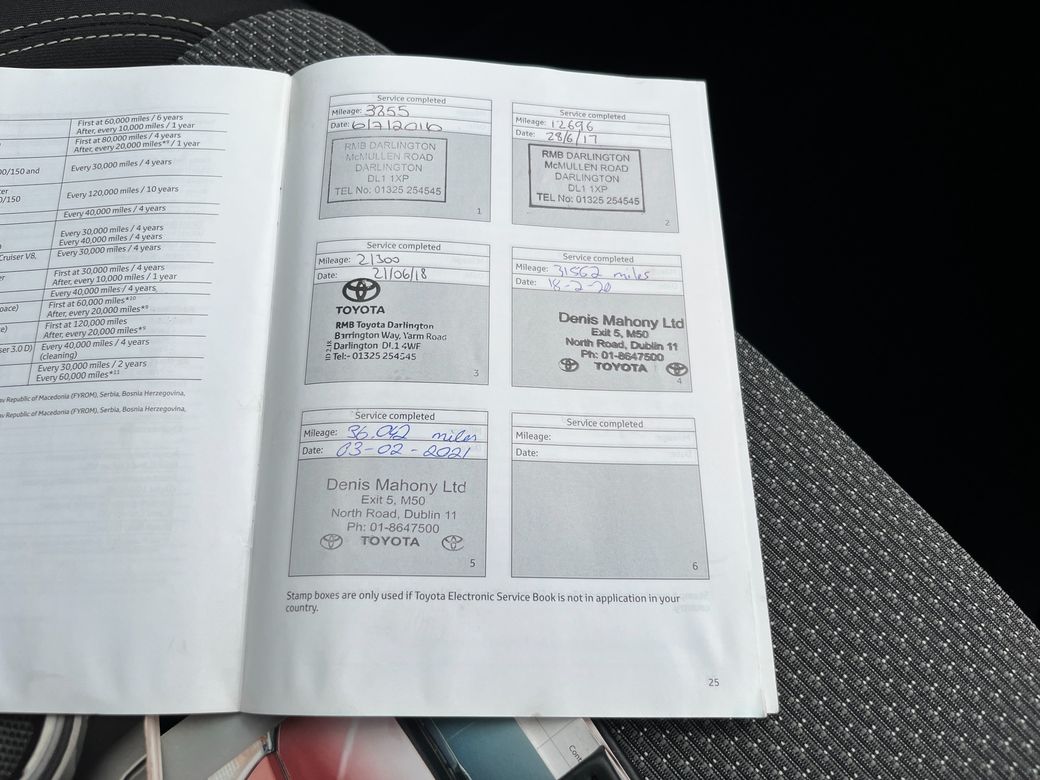 First at 60,000 miles / 6 years
After, every 10,000 miles / 1 year
First at 80,000 miles / 4 years
After, every 20,000 miles*⁹ / 1 year
00/150 and
Every 30,000 miles / 4 years
Every 120,000 miles / 10 years
0/150
Every 40,000 miles / 4 years
Every 30,000 miles / 4 years
Every 40,000 miles / 4 years
Cruiser V8,
Every 30,000 miles / 4 years
First at 30,000 miles / 4 years
After, every 10,000 miles / 1 year
Every 40,000 miles / 4 years
First at 60,000 miles*¹⁰
After, every 20,000 miles*⁹
First at 120,000 miles
After, every 20,000 miles*⁹
ser 3.0 D)
Every 40,000 miles / 4 years
(cleaning)
Every 30,000 miles / 2 years
Every 60,000 miles*¹¹
av Republic of Macedonia (FYROM), Serbia, Bosnia Herzegovina,
av Republic of Macedonia (FYROM), Serbia, Bosnia Herzegovina,
Service completed
Mileage: 3855
Date: 6/7/2016
RMB DARLINGTON
McMULLEN ROAD
DARLINGTON
DL1 1XP
TEL No: 01325 254545
1
Service completed
Mileage: 12696
Date: 28/6/17
RMB DARLINGTON
McMULLEN ROAD
DARLINGTON
DL1 1XP
TEL No: 01325 254545
2
Service completed
Mileage: 21300
Date: 21/06/18
TOYOTA
RMB Toyota Darlington
Barrington Way, Yarm Road
Darlington DL1 4WF
Tel:- 01325 254545
3
Service completed
Mileage: 31562 miles
Date: 18-2-20
Denis Mahony Ltd
Exit 5, M50
North Road, Dublin 11
Ph: 01-8647500
TOYOTA
4
Service completed
Mileage: 36,042 miles
Date: 03-02-2021
Denis Mahony Ltd
Exit 5, M50
North Road, Dublin 11
Ph: 01-8647500
TOYOTA
5
Service completed
Mileage:
Date:
6
Stamp boxes are only used if Toyota Electronic Service Book is not in application in your
country.
25